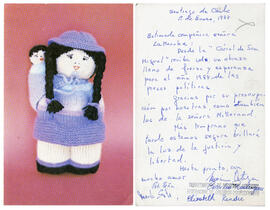 Santiago de Chile
1º de Enero, 1988
Estimada compañera señora
Desde la "Cárcel de San
Miguel" reciba un abrazo
lleno de fuerza y esperanza
para el año 1988 de las
presas políticas
gracias por su preocupa
ción por nosotras, como también
los de la señora McDonand
Más temprano que
tarde estamos seguras brillará
la luz de la justicia y
libertad.
Hasta pronto, con
mucho amor
Elizabeth